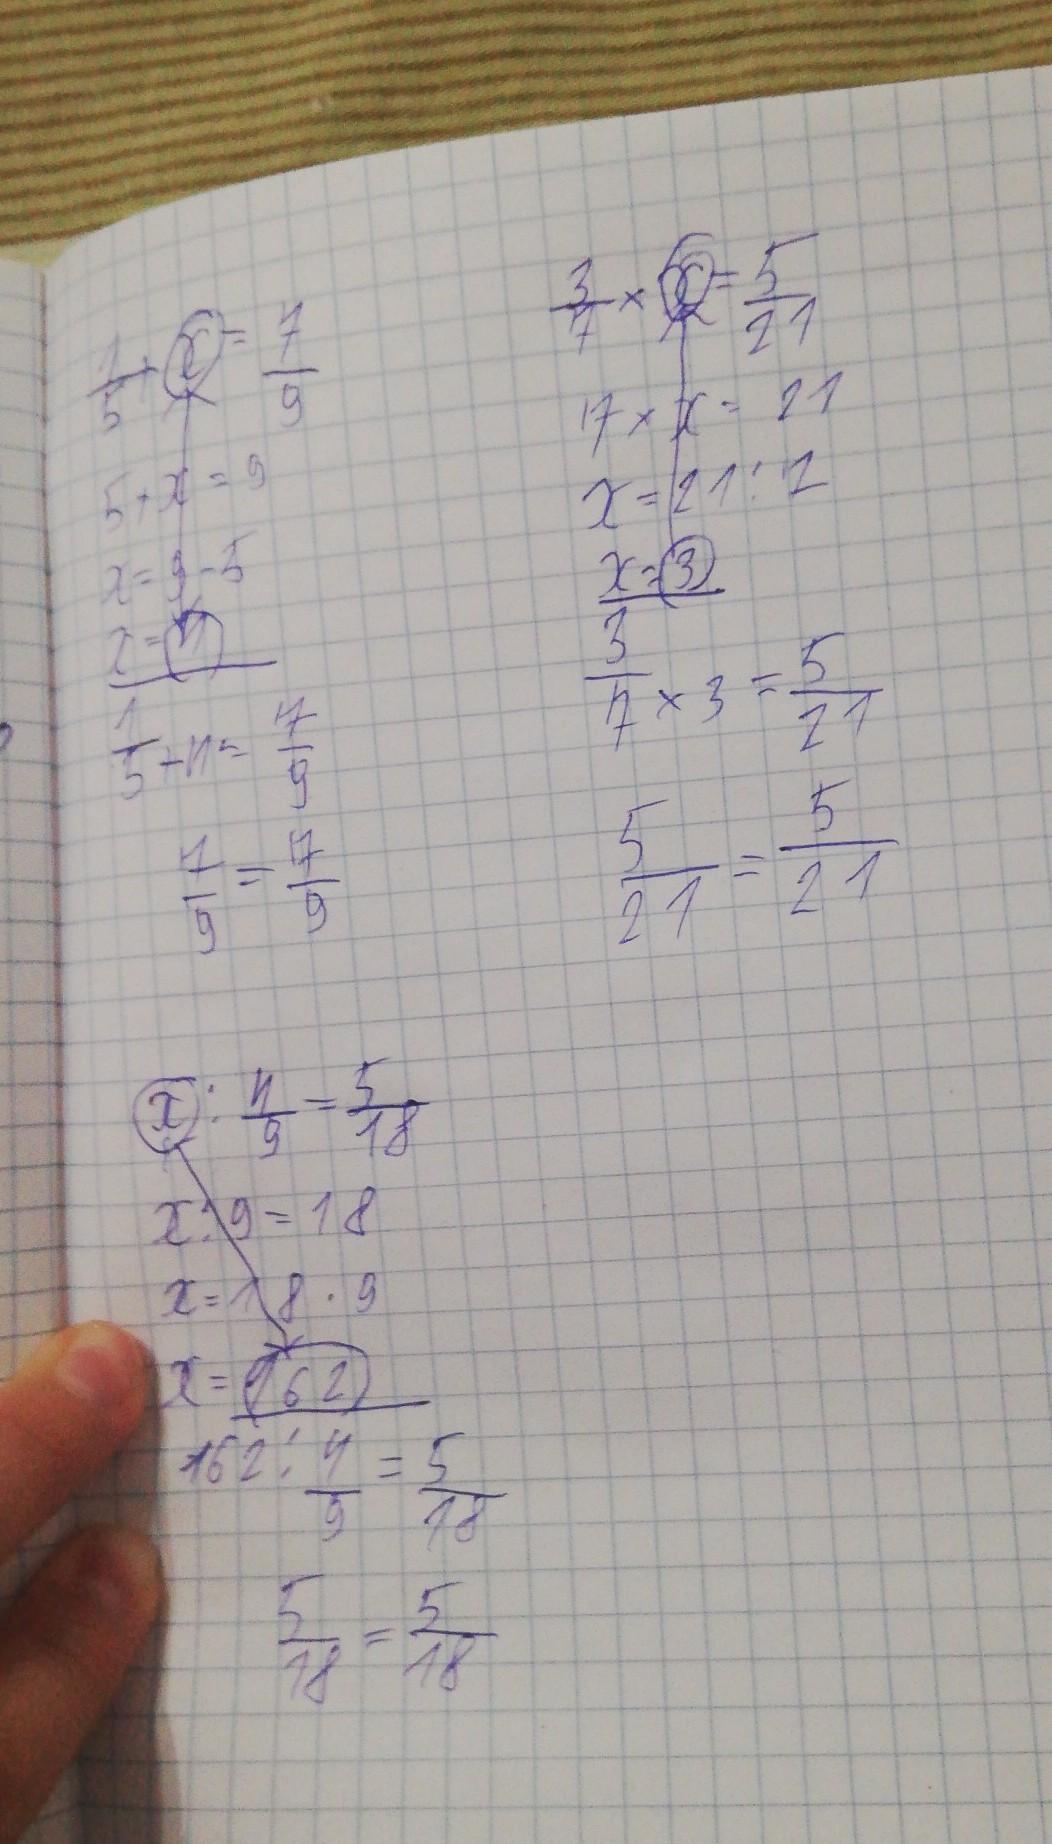 1/5 + x = 7/9
5 + x = 9
x = 9 - 5
x = 4
1/5 + 4 = 7/9
7/9 = 7/9
3/7 × x = 5/21
7 × x = 21
x = 21 : 7
x = 3
3/7 × 3 = 5/21
5/21 = 5/21
x : 4/9 = 5/18
x : 9 = 18
x = 18 · 9
x = 162
162 : 4/9 = 5/18
5/18 = 5/18